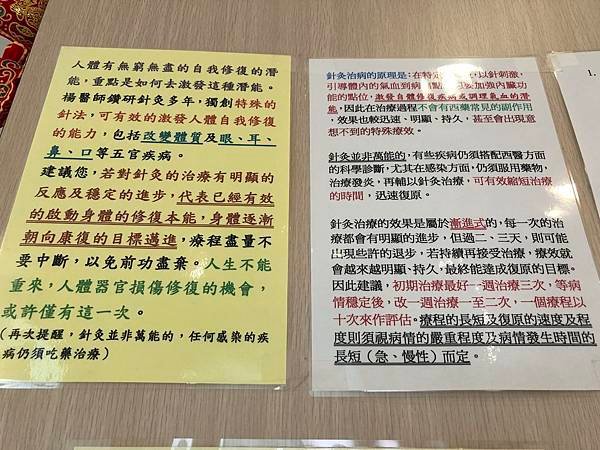 人體有無窮無盡的自我修復的潛
能，重點是如何去激發這種潛能。
楊醫師鑽研針灸多年，獨創特殊的
針法，可有效的激發人體自我修復
的能力，包括改變體質及眼、耳、
鼻、口等五官疾病。
建議您，若對針灸的治療有明顯的
反應及穩定的進步，代表已經有效
的啟動身體的修復本能，身體逐漸
朝向康復的目標邁進，療程盡量不
要中斷，以免前功盡棄。人生不能
重來，人體器官損傷修復的機會，
或許僅有這一次。
(再次提醒，針灸並非萬能的，任何感染的疾
病仍須吃藥治療)
針灸治病的原理是：在特定，以針刺激，
引導體內的氣血到病要加強內臟功
能的點位，激發自體修復疾病或調理氣血的潛
能，因此在治療過程不會有西藥常見的副作用
，效果也較迅速、明顯、持久，甚至會出現意
想不到的特殊療效。
針灸並非萬能的，有些疾病仍須搭配西醫方面
的科學診斷，尤其在感染方面，仍須服用藥物，
治療發炎，再輔以針灸治療，可有效縮短治療
的時間，迅速復原。
針灸治療的效果是屬於漸進式的，每一次的治
療都會有明顯的進步，但過二、三天，則可能
出現些許的退步，若持續再接受治療，療效就
會越來越明顯、持久，最終能達成復原的目標。
因此建議，初期治療最好一週治療三次，等病
情穩定後，改一週治療一至二次，一個療程以
十次來作評估。療程的長短及復原的速度及程
度則須視病情的嚴重程度及病情發生時間的
長短（急、慢性）而定。
1.